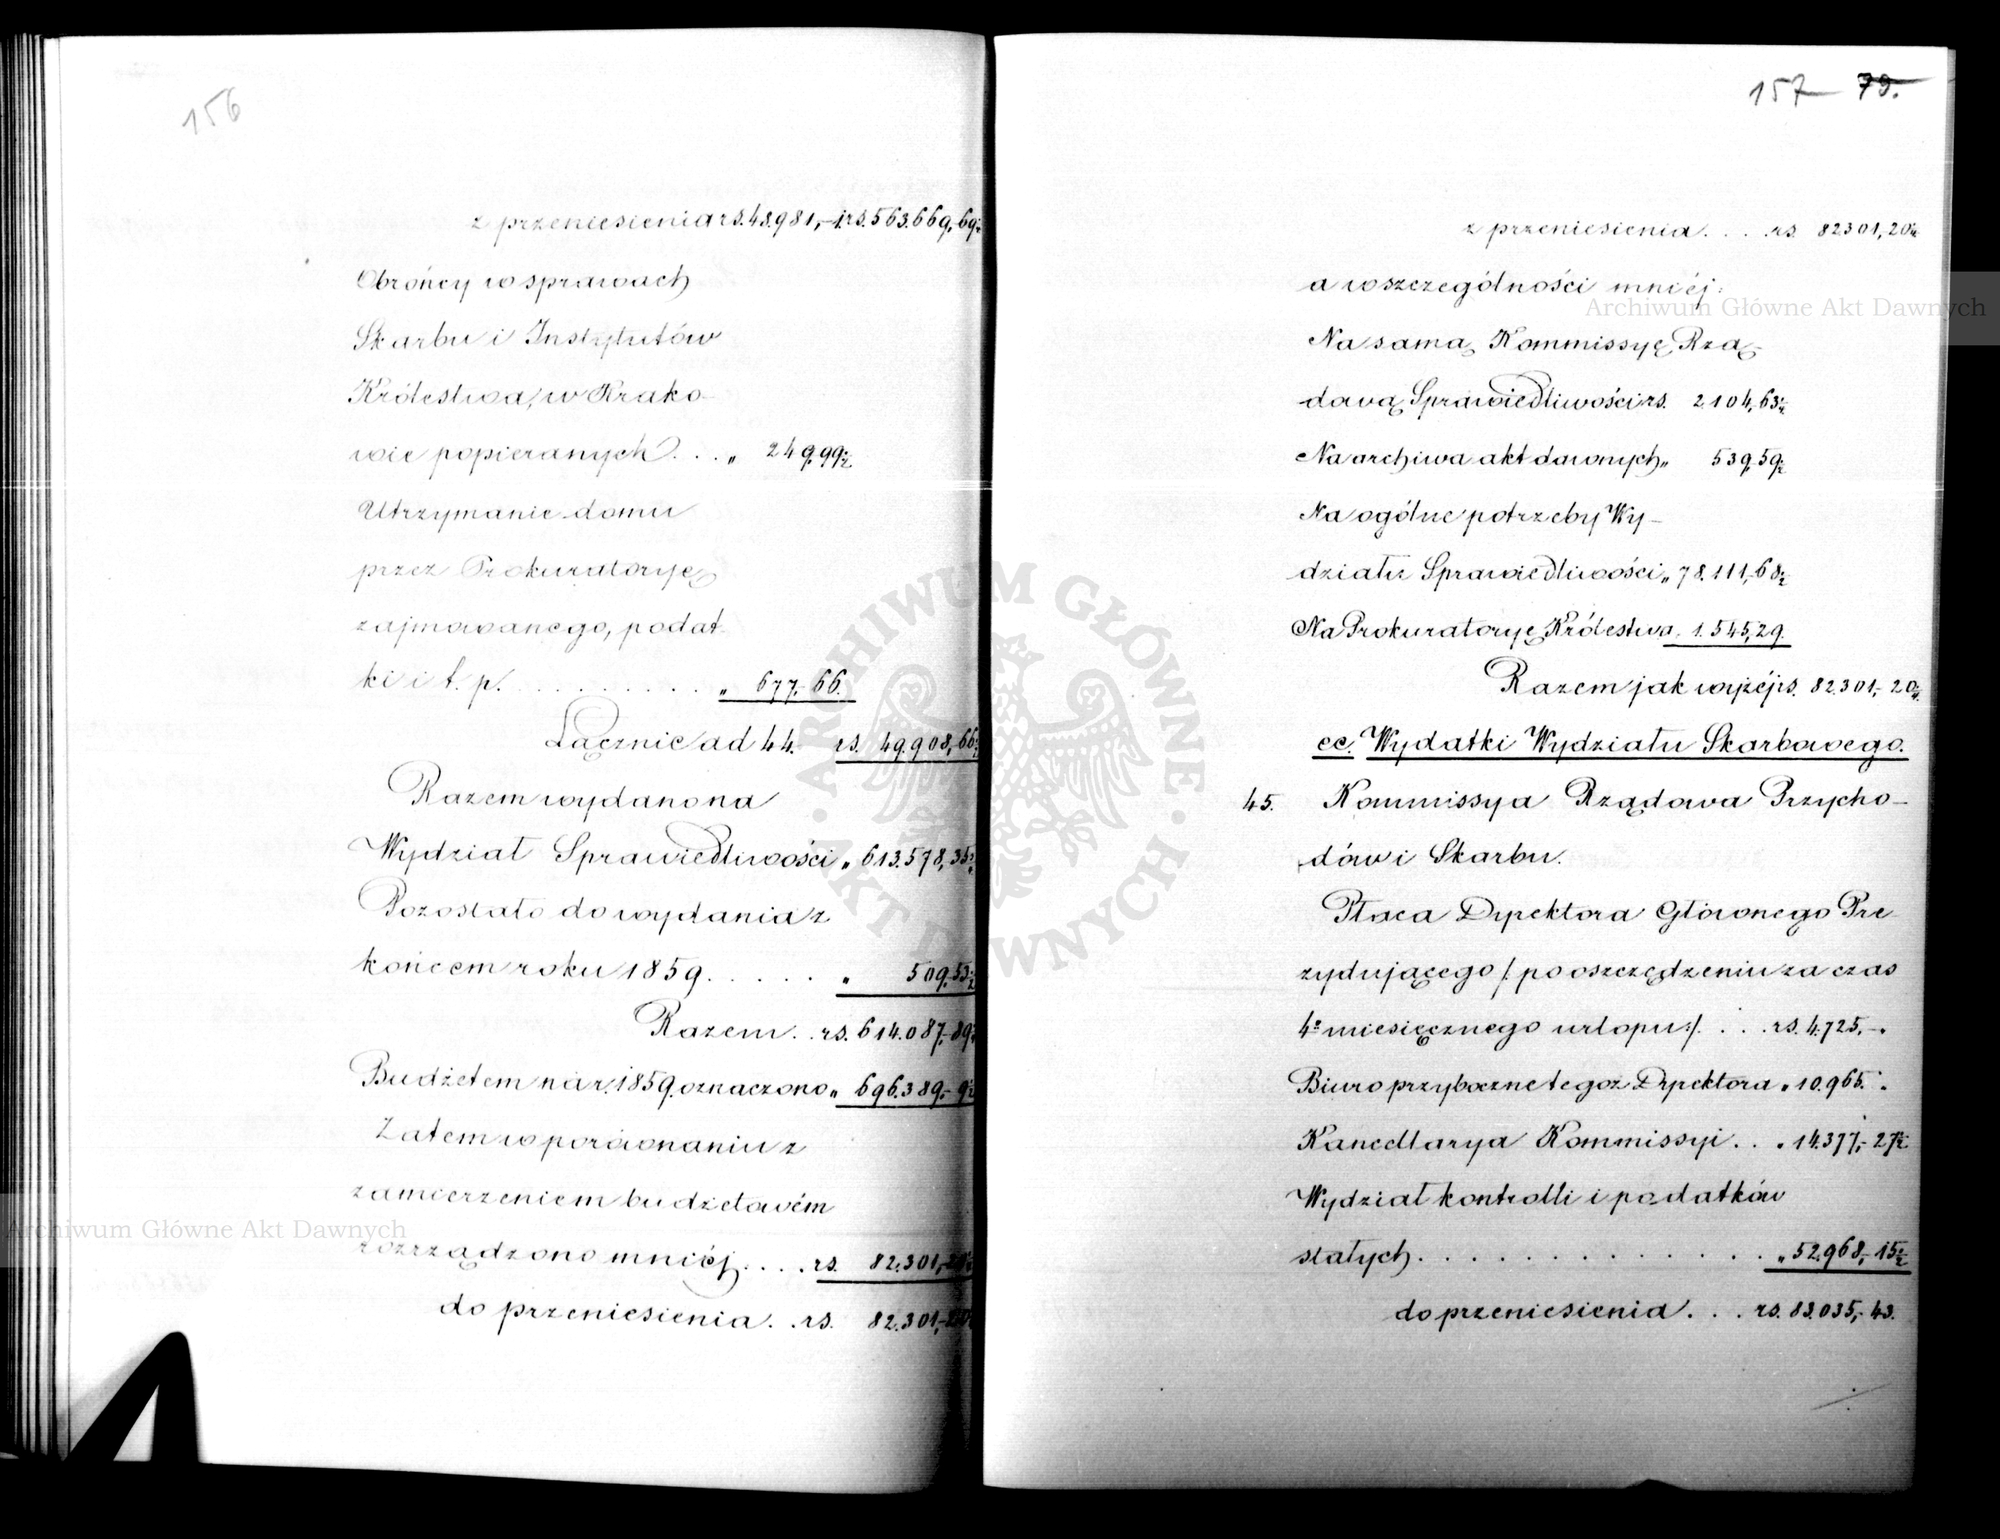 156
z przeniesienia rs. 48.981,-1. rs. 563.669,-69½
Obrońcy w sprawach
Skarbu i Instytutów
Królestwa, w Krako-
wie popieranych . . . „ 249,99½
Utrzymanie domu
przez Prokuratoryę
zajmowanego, podat-
ki i t. p. . . . . . . . . . „ 677,-66.
Łącznie ad 44. rs. 49.908,-66½
Razem wydano na
Wydział Sprawiedliwości „ 613.578,35
Pozostało do wydania z
końcem roku 1859. . . . . . „ 509,53½
Razem . . rs. 614.087,-89
Budżetem na r. 1859. oznaczono „ 696.389,-9½
Zatem w porównaniu z
zamierzeniem budżetowém
rozrządzono mniéj. . . . rs. 82.301,-20
do przeniesienia. . rs. 82.301,-20
157 79.
z przeniesienia . . . . rs. 82301,20
a w szczególności mniéj:
Na samą Kommissyę Rzą-
dową Sprawiedliwości rs. 2.104,-63½
Na archiwa akt dawnych „ 539,-59½
Na ogólne potrzeby Wy-
działu Sprawiedliwości „ 78.111,-68½
Na Prokuratoryę Królestwa. 1.545,-29.
Razem jak wyżéj rs. 82.301,-20
cc. Wydatki Wydziału Skarbowego.
45. Kommissya Rządowa Przycho-
dów i Skarbu.
Płaca Dyrektora Głównego Pre-
zydującego /: po oszczędzeniu za czas
4º miesięcznego urlopu :/. . . . rs. 4.725,-.
Biuro przyboczne tegoż Dyrektora „ 10.965. -.
Kancellarya Kommissyi . . „ 14.377,-27½
Wydział kontrolli i podatków
stałych . . . . . . . . . . . . . „ 52.968,-15½
do przeniesienia . . . rs. 83.035,-43.
Archiwum Główne Akt Dawnych
Archiwum Główne Akt Dawnych
ARCHIWUM GŁÓWNE · AKT DAWNYCH ·